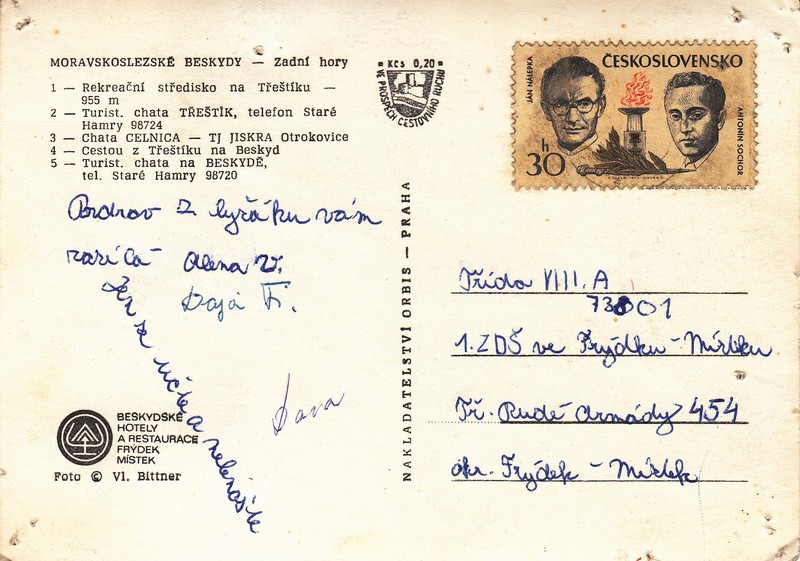 MORAVSKOSLEZSKÉ BESKYDY — Zadní hory
1 — Rekreační středisko na Třeštíku —
955 m
2 — Turist. chata TŘEŠTÍK, telefon Staré
Hamry 98724
3 — Chata CELNICA — TJ JISKRA Otrokovice
4 — Cestou z Třeštíku na Beskyd
5 — Turist. chata na BESKYDĚ,
tel. Staré Hamry 98720
Pozdrav z lyžáku vám
Alena V.
Dája F.
Jen se učte a nelenošte
Dava
BESKYDSKÉ
HOTELY
A RESTAURACE
FRÝDEK
MÍSTEK
Foto © Vl. Bittner
KČS 0,20
VE PROSPĚCH CESTOVNÍHO RUCHU
NAKLADATELSTVÍ ORBIS — PRAHA
ČESKOSLOVENSKO
JÁN NÁLEPKA
ANTONÍN SOCHOR
30 h
Třída VIII. A
73801
1. ZDŠ ve Frýdku-Místku
Tř. Rudé armády 454
okr. Frýdek - Místek